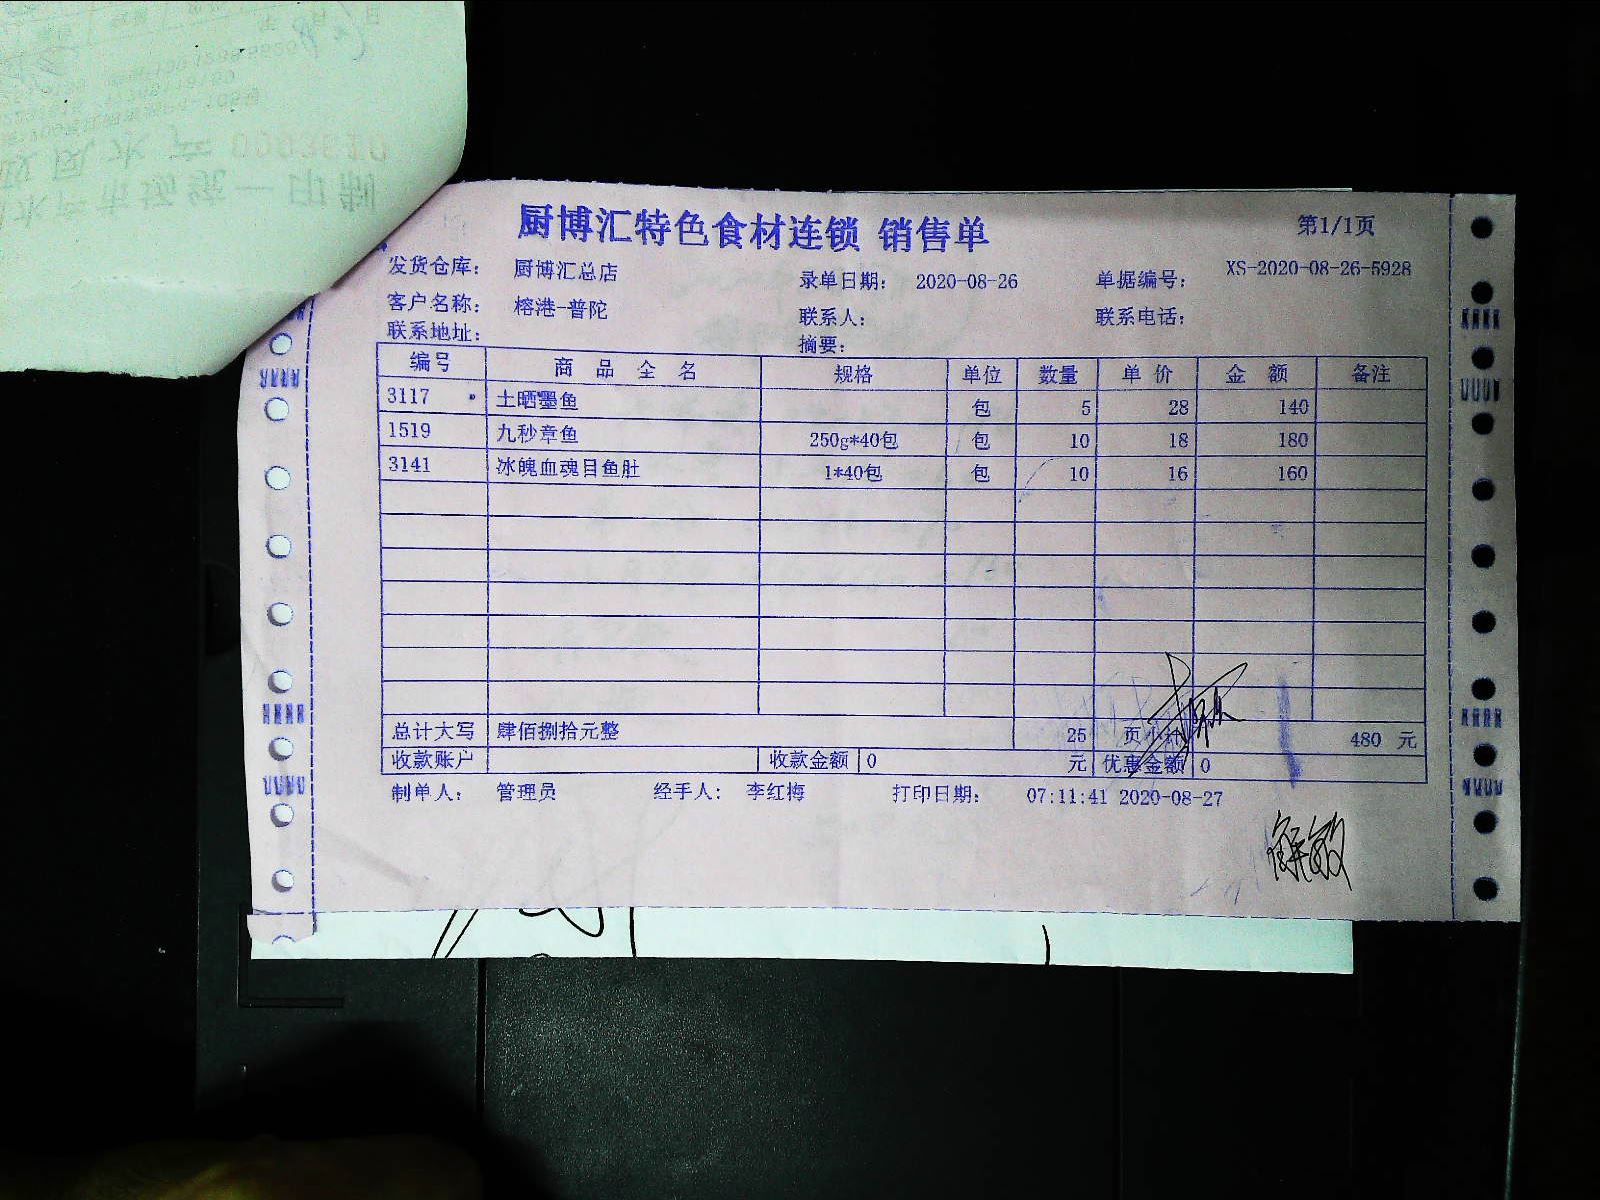 厨博汇特色食材连锁 销售单 第1/1页
发货仓库： 厨博汇总店 录单日期： 2020-08-26 单据编号： XS-2020-08-26-5928
客户名称： 榕港-普陀 联系人： 联系电话：
联系地址： 摘要：
编号 商品全名 规格 单位 数量 单价 金额 备注
3117 土晒墨鱼 包 5 28 140
1519 九秒章鱼 250g*40包 包 10 18 180
3141 冰魄血魂目鱼肚 1*40包 包 10 16 160
总计大写 肆佰捌拾元整 25 页小计 480 元
收款账户 收款金额 0 元 优惠金额 0
制单人： 管理员 经手人： 李红梅 打印日期： 07:11:41 2020-08-27